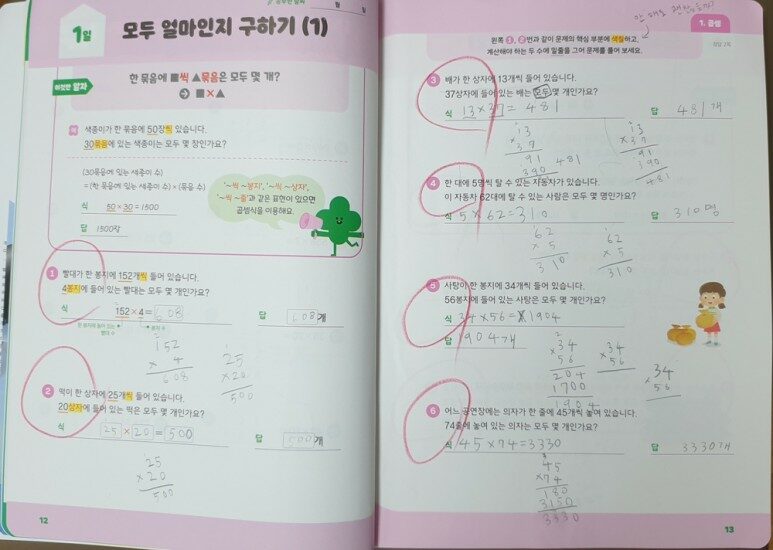 1일
모두 얼마인지 구하기 (1)
월 일
이것만 알자
한 묶음에 ■씩 ▲묶음은 모두 몇 개?
➔ ■×▲
예
색종이가 한 묶음에 50장씩 있습니다.
30묶음에 있는 색종이는 모두 몇 장인가요?
(30묶음에 있는 색종이 수)
=(한 묶음에 있는 색종이 수)×(묶음 수)
식 50×30=1500
답 1500장
'~씩 ~봉지', '~씩 ~상자',
'~씩 ~줄'과 같은 표현이 있으면
곱셈식을 이용해요.
1 빨대가 한 봉지에 152개씩 들어 있습니다.
4봉지에 들어 있는 빨대는 모두 몇 개인가요?
식 152×4=608
답 608개
한 봉지에 들어 있는 빨대 수
봉지 수
152
× 4
608
25
×20
500
2 떡이 한 상자에 25개씩 들어 있습니다.
20상자에 들어 있는 떡은 모두 몇 개인가요?
식 25×20=500
답 500개
25
×20
500
12
1. 곱셈
정답 2쪽
왼쪽 1, 2번과 같이 문제의 핵심 부분에 색칠하고,
계산해야 하는 두 수에 밑줄을 그어 문제를 풀어 보세요.
3 배가 한 상자에 13개씩 들어 있습니다.
37상자에 들어 있는 배는 모두 몇 개인가요?
식 13×37=481
답 481개
13
×37
91
390
481
13
×37
91
390
481
4 한 대에 5명씩 탈 수 있는 자동차가 있습니다.
이 자동차 62대에 탈 수 있는 사람은 모두 몇 명인가요?
식 5×62=310
답 310명
62
× 5
310
62
×5
310
5 사탕이 한 봉지에 34개씩 들어 있습니다.
56봉지에 들어 있는 사탕은 모두 몇 개인가요?
식 34×56=1904
답 1904개
34
56
204
1700
1904
×34
56
×34
56
6 어느 공연장에는 의자가 한 줄에 45개씩 놓여 있습니다.
74줄에 놓여 있는 의자는 모두 몇 개인가요?
식 45×74=3330
답 3330개
45
×74
180
3150
3330
13